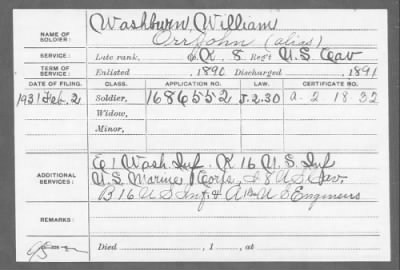 NAME OF SOLDIER: Washburn, William
Orr, John (alias)
SERVICE: Late rank, K 8 Reg't U.S. Cav
TERM OF SERVICE: Enlisted , 1890 Discharged , 1891
DATE OF FILING. CLASS. APPLICATION NO. LAW. CERTIFICATE NO.
1931 Feb. 2 Soldier, 1686552 J.2.30 a-2-18-32
Widow,
Minor,
ADDITIONAL SERVICES: E 1 Wash. Inf. K 16 U.S. Inf
U.S. Marine Corps, I 8 U.S. Cav.
B 16 U S Inf. & A U S Engineers
REMARKS:
Died , 1 , at